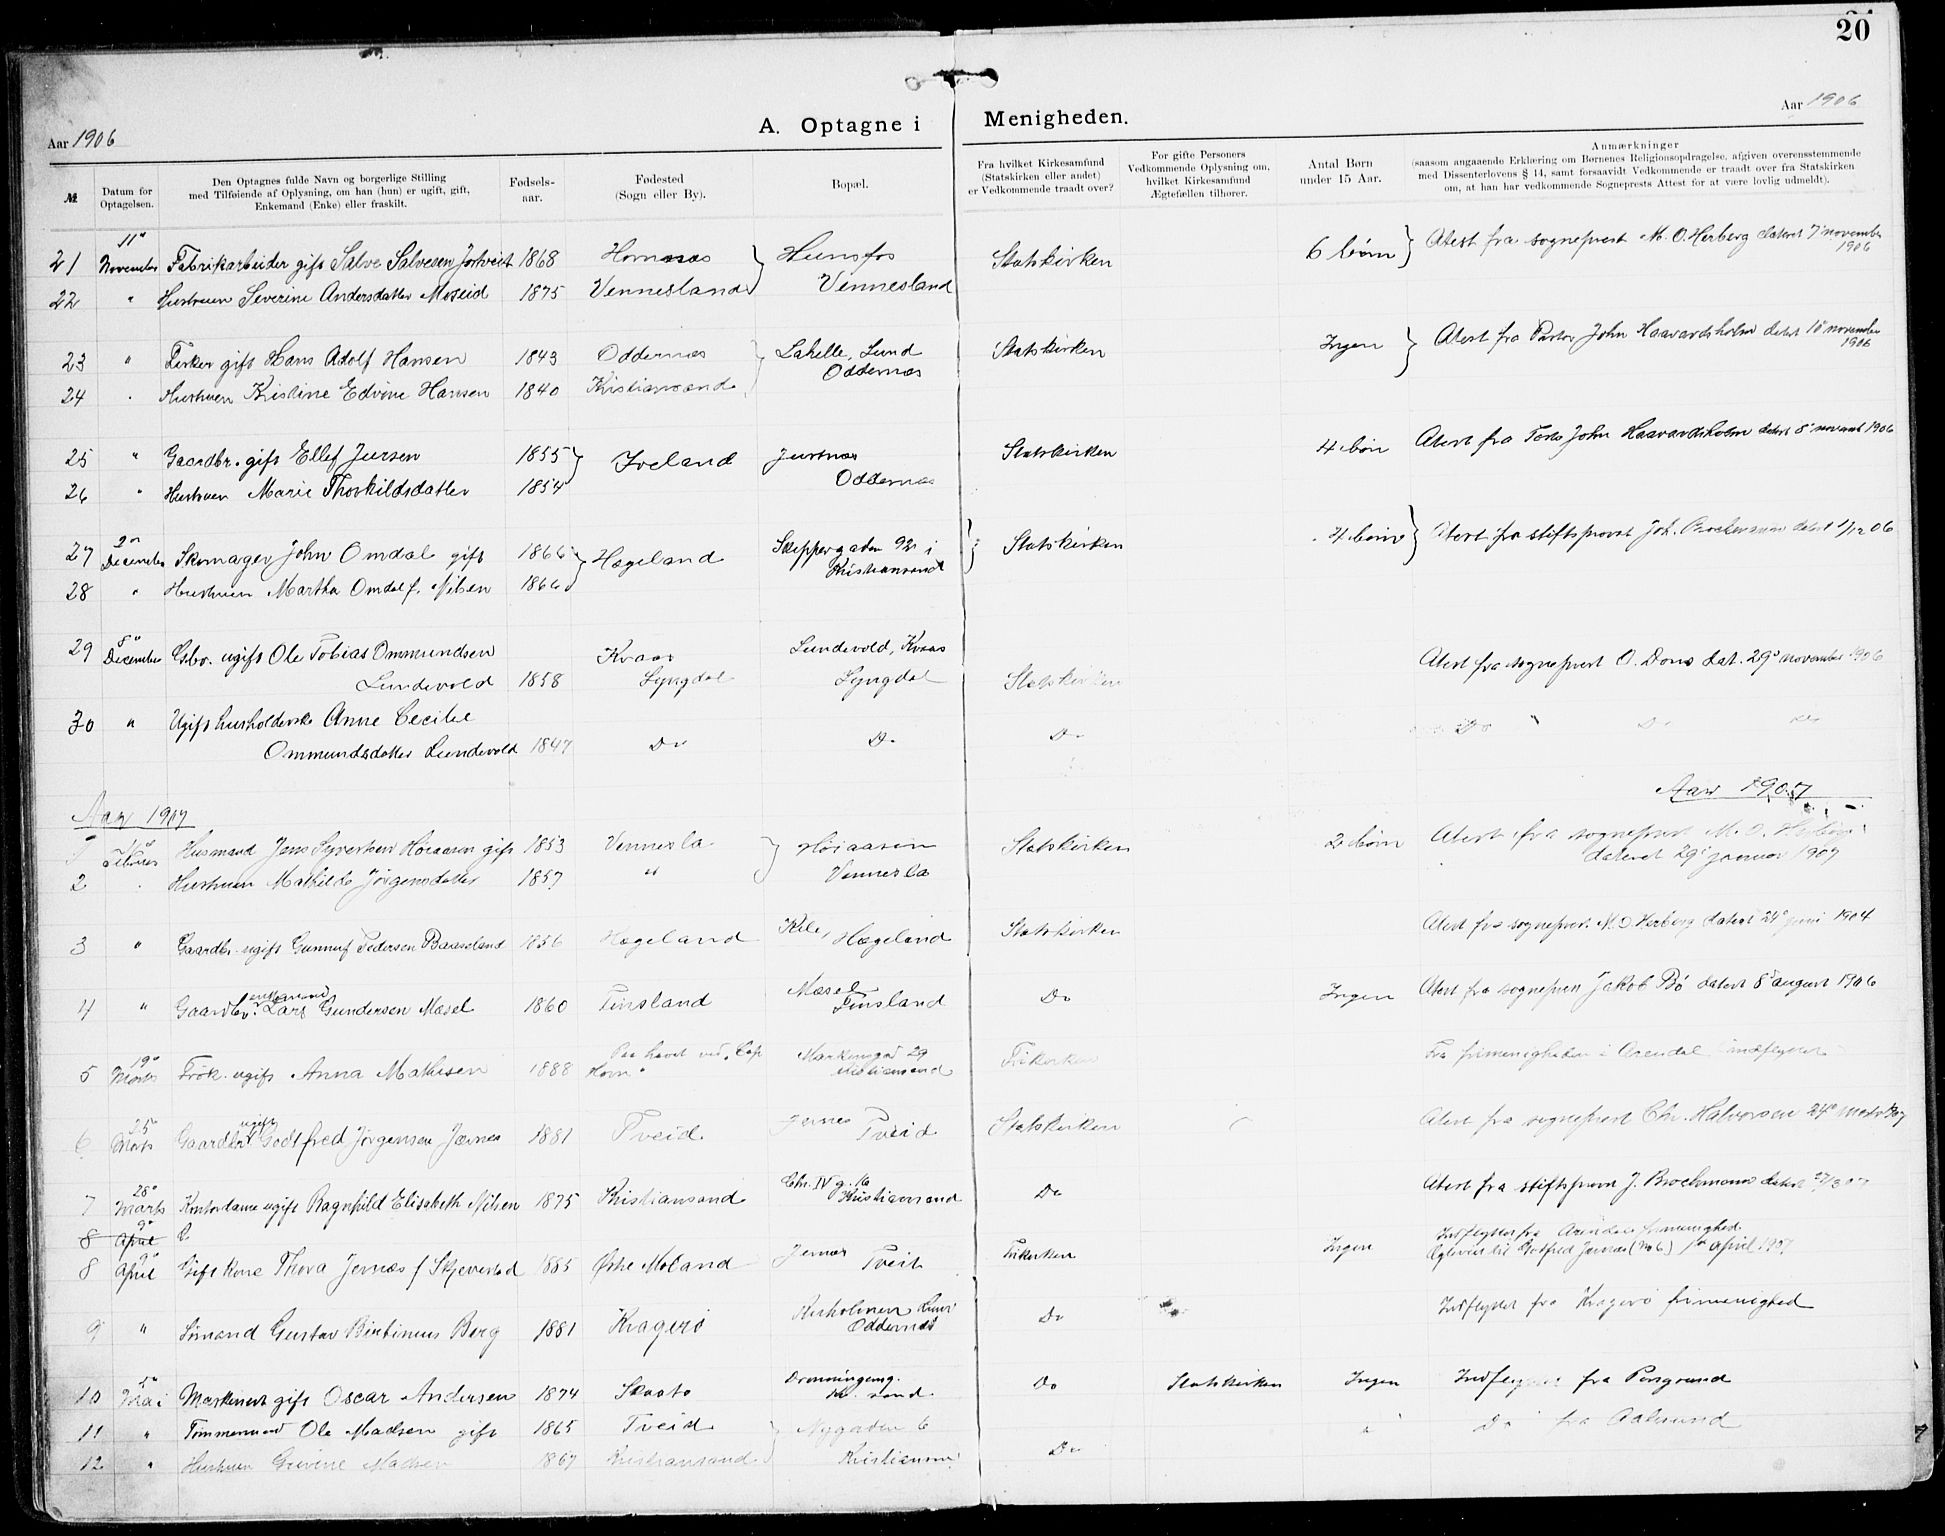 20
Aar 1906
A. Optagne i Menigheden.
Aar 1906
№
Datum for Optagelsen.
Den Optagnes fulde Navn og borgerlige Stilling
med Tilføiende af Oplysning, om han (hun) er ugift, gift,
Enkemand (Enke) eller fraskilt.
Fødsels-
aar.
Fødested
(Sogn eller By).
Bopæl.
Fra hvilket Kirkesamfund
(Statskirken eller andet)
er Vedkommende traadt over?
For gifte Personers
Vedkommende Oplysning om,
hvilket Kirkesamfund
Ægtefællen tilhører.
Antal Børn
under 15 Aar.
Anmærkninger
(saasom angaaende Erklæring om Børnenes Religionsopdragelse, afgiven overensstemmende
med Dissenterlovens § 14, samt forsaavidt Vedkommende er traadt over fra Statskirken
om, at han har vedkommende Sogneprests Attest for at være lovlig udmeldt).
21 11te November Fabrikarbeider gift Salve Salvesen 1868 Hornnes Hunsfos Statskirken 6 børn Atest fra sogneprest M. O. Herberg dateret 7 november 1906
22 " Hustruen Severine Andersdatter Moseid 1875 Vennesland Vennesland
23 " Fisker gift Hans Adolf Hansen 1843 Oddernæs Lahelle, Lund Oddernæs Statskirken Ingen Atest fra Pastor John Haavardsholm datert 10 november 1906
24 " Hustruen Kristine Edvine Hansen 1840 Kristiansand
25 " Gaardbr. gift Ellef Jursen 1855 Iveland Justnæs Oddernæs Statskirken 4 børn Atest fra John Haavardsholm datert 8 1906
26 " Hustruen Marie Thorkildsdatter 1854
27 2n December Skomager John Omdal gift 1866 Hægeland Skippergaden 92 i Kristiansand Statskirken 4 børn Atest fra stiftsprovst Joh. datert 1/12 06
28 " Hustruen Martha Omdal f. Nilsen 1866
29 8n December Gbr. ugift Ole Tobias Ommundsen Kvaas Lundevold, Kvaas Atest fra sogneprest O. Dons dat. 29 november 1906
Lundevold 1858 Lyngdal Lyngdal Statskirken
30 " Ugift husholderske Anne Cecilie
Ommundsdatter Lundevold 1847 Do Do Do Do " Do
Aar 1907
Aar 1907
1 Februar Husmand Jens Syvertsen Høiaasen gift 1853 Vennesla Høiaasen Statskirken 2 børn Atest fra sogneprest M. O. Herberg
dateret 29 januar 1907
2 " Hustruen Mathilde Jørgensdatter 1857 " Vennesla
3 " Gaardbr. ugift Gunnuf Pedersen Baaseland 1856 Hægeland Kile, Hægeland Statskirken Atest fra sogneprest M. O Herberg datert 24 juni 1904
4 " Gaardbr. enkemand Lars Gundersen Mæsel 1860 Finsland Mæsel Finsland Do Ingen Atest fra sogneprest Jakob Bø datert 8 august 1906
5 19n Marts Frøk. ugift Anna Mathisen 1888 Paa havet ved "Cap Horn" Markensgad 29 Kristiansand Frikirken Fra frimenigheden i Arendal indflyttet
6 25 Marts Gaardbr ugift Godtfred Jørgensen Jærnes 1881 Tveid Jernes Tveid Statskirken Atest fra sogneprest Chr. Halvorsen 24 marts 1907
7 28n Marts Kontordame ugift Ragnhild Elisabeth Nilsen 1875 Kristiansand Chr. IV g. 16 Kristiansand Do Atest fra stiftsprovst J. Brochmann datert 27/3 07
8 9n April
8 9n April Gift kone Thora Jernæs f Skjevestad 1885 Østre Moland Jernæs Tveit Frikirken Ingen Indflyttet fra Arendals frimenighed
Godtfred Jernæs (No 6) 1ste April 1907
9 " Sømand Gustav Bertinius Berg 1881 Kragerø Kuholmen Lund Oddernæs Do Indflyttet fra Kragerø frimenighed
10 5n Mai Maskinist gift Oscar Andersen 1874 Skaatø Dronningensg. Kr. sand Do Statskirken Ingen Indflyttet fra Porsgrund
11 " Tømmermand Ole Madsen gift 1865 Tveid Nygaden 6 " Do fra Aalesund
12 " Hustruen Madsen 1867 Kristiansand Kristiansand Do